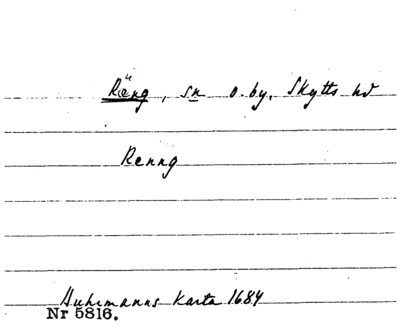 Räng, sn o. by, Skytts hd
Renng
Buhrmanns Karta 1684
Nr 5816.